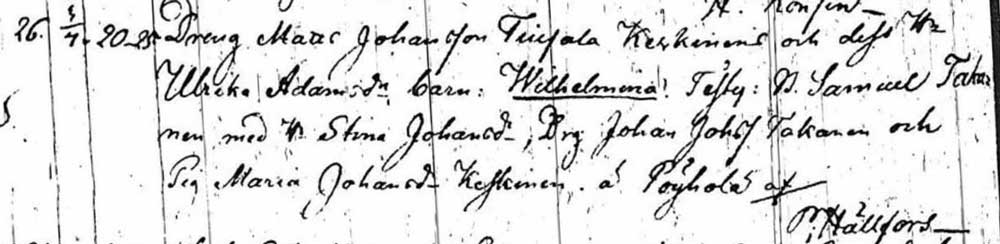 A. Konfin
26. 3/7. 20. 25 Dreng Mats Johansson Tiusala Keskinens och dess H:u
Ulrika Adamsdr barn: Wilhelmina! Testes: B. Samuel Taka-
nen med H. Stina Johansdr, Drg Johan Johss Takanen och
Pig Maria Johansdr Keskinen. å Pöyhölä af
P. Hällfors